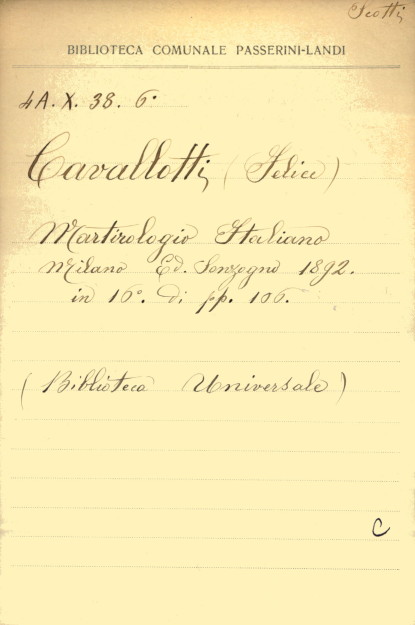 Scotti
BIBLIOTECA COMUNALE PASSERINI-LANDI
4A. X. 38. 6.
Cavallotti (Felice)
Martirologio Italiano
Milano Ed. Sonzogno 1892.
in 16°. di pp. 106.
(Biblioteca Universale)
C